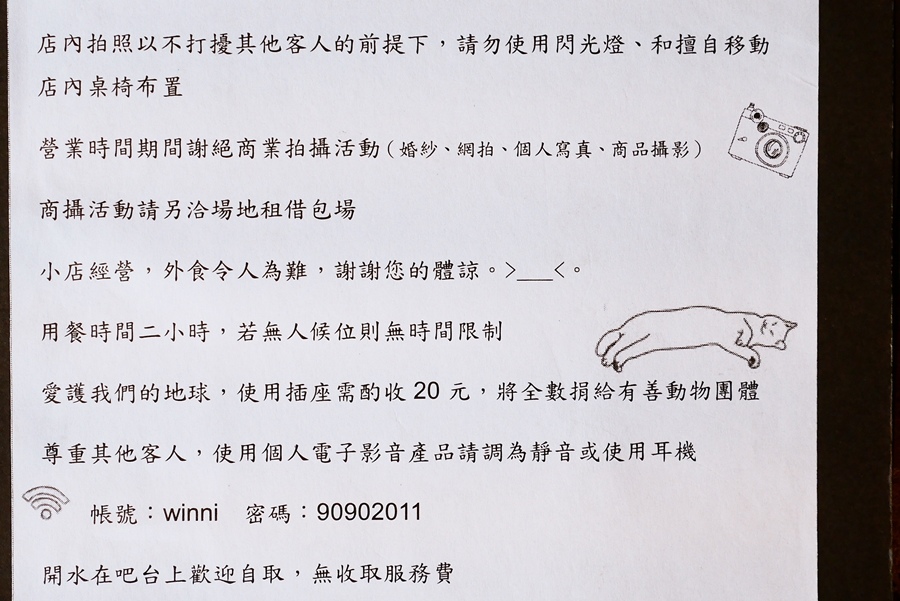 店內拍照以不打擾其他客人的前提下，請勿使用閃光燈、和擅自移動
店內桌椅布置
營業時間期間謝絕商業拍攝活動（婚紗、網拍、個人寫真、商品攝影）
商攝活動請另洽場地租借包場
小店經營，外食令人為難，謝謝您的體諒。>___<。
用餐時間二小時，若無人候位則無時間限制
愛護我們的地球，使用插座需酌收 20 元，將全數捐給有善動物團體
尊重其他客人，使用個人電子影音產品請調為靜音或使用耳機
帳號：winni　密碼：90902011
開水在吧台上歡迎自取，無收取服務費